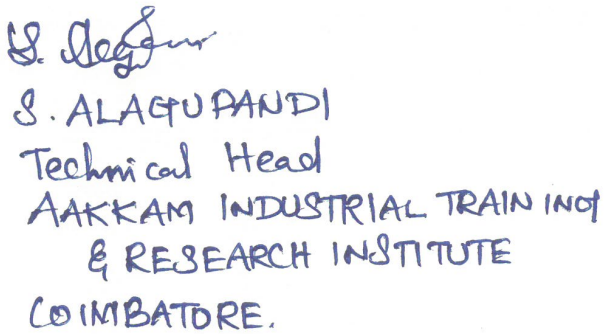 S. ALAGUPANDI
Technical Head
AAKKAM INDUSTRIAL TRAINING
& RESEARCH INSTITUTE
COIMBATORE.